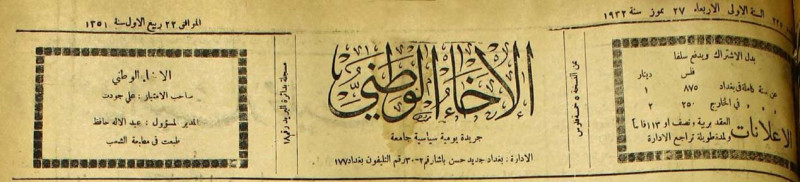 السنة الاولى الاربعاء ٢٧ تموز سنة ١٩٣٢
الموافق ٢٣ ربيع الاول سنة ١٣٥١
بدل الاشتراك ويدفع سلفا
فلس دينار
عن سنة كاملة في بغداد ٨٧٥ ١
في الخارج ٢٥٠ ٢
الاعلانات
ولمدة طويلة تراجع الادارة
ثمن النسخة ٥ خمسة فلوس
الإخاء الوطني
جريدة يومية سياسية جامعة
الادارة : بغداد جديد حسن باشا رقم ٢-٣٠ رقم التليفون بغداد ١٧٧
مسجلة بدائرة البريد رقم ١٨
الاخاء الوطني
صاحب الامتياز : علي جودت
المدير المسؤول : عبد الاله حافظ
طبعت في مطبعة الشعب